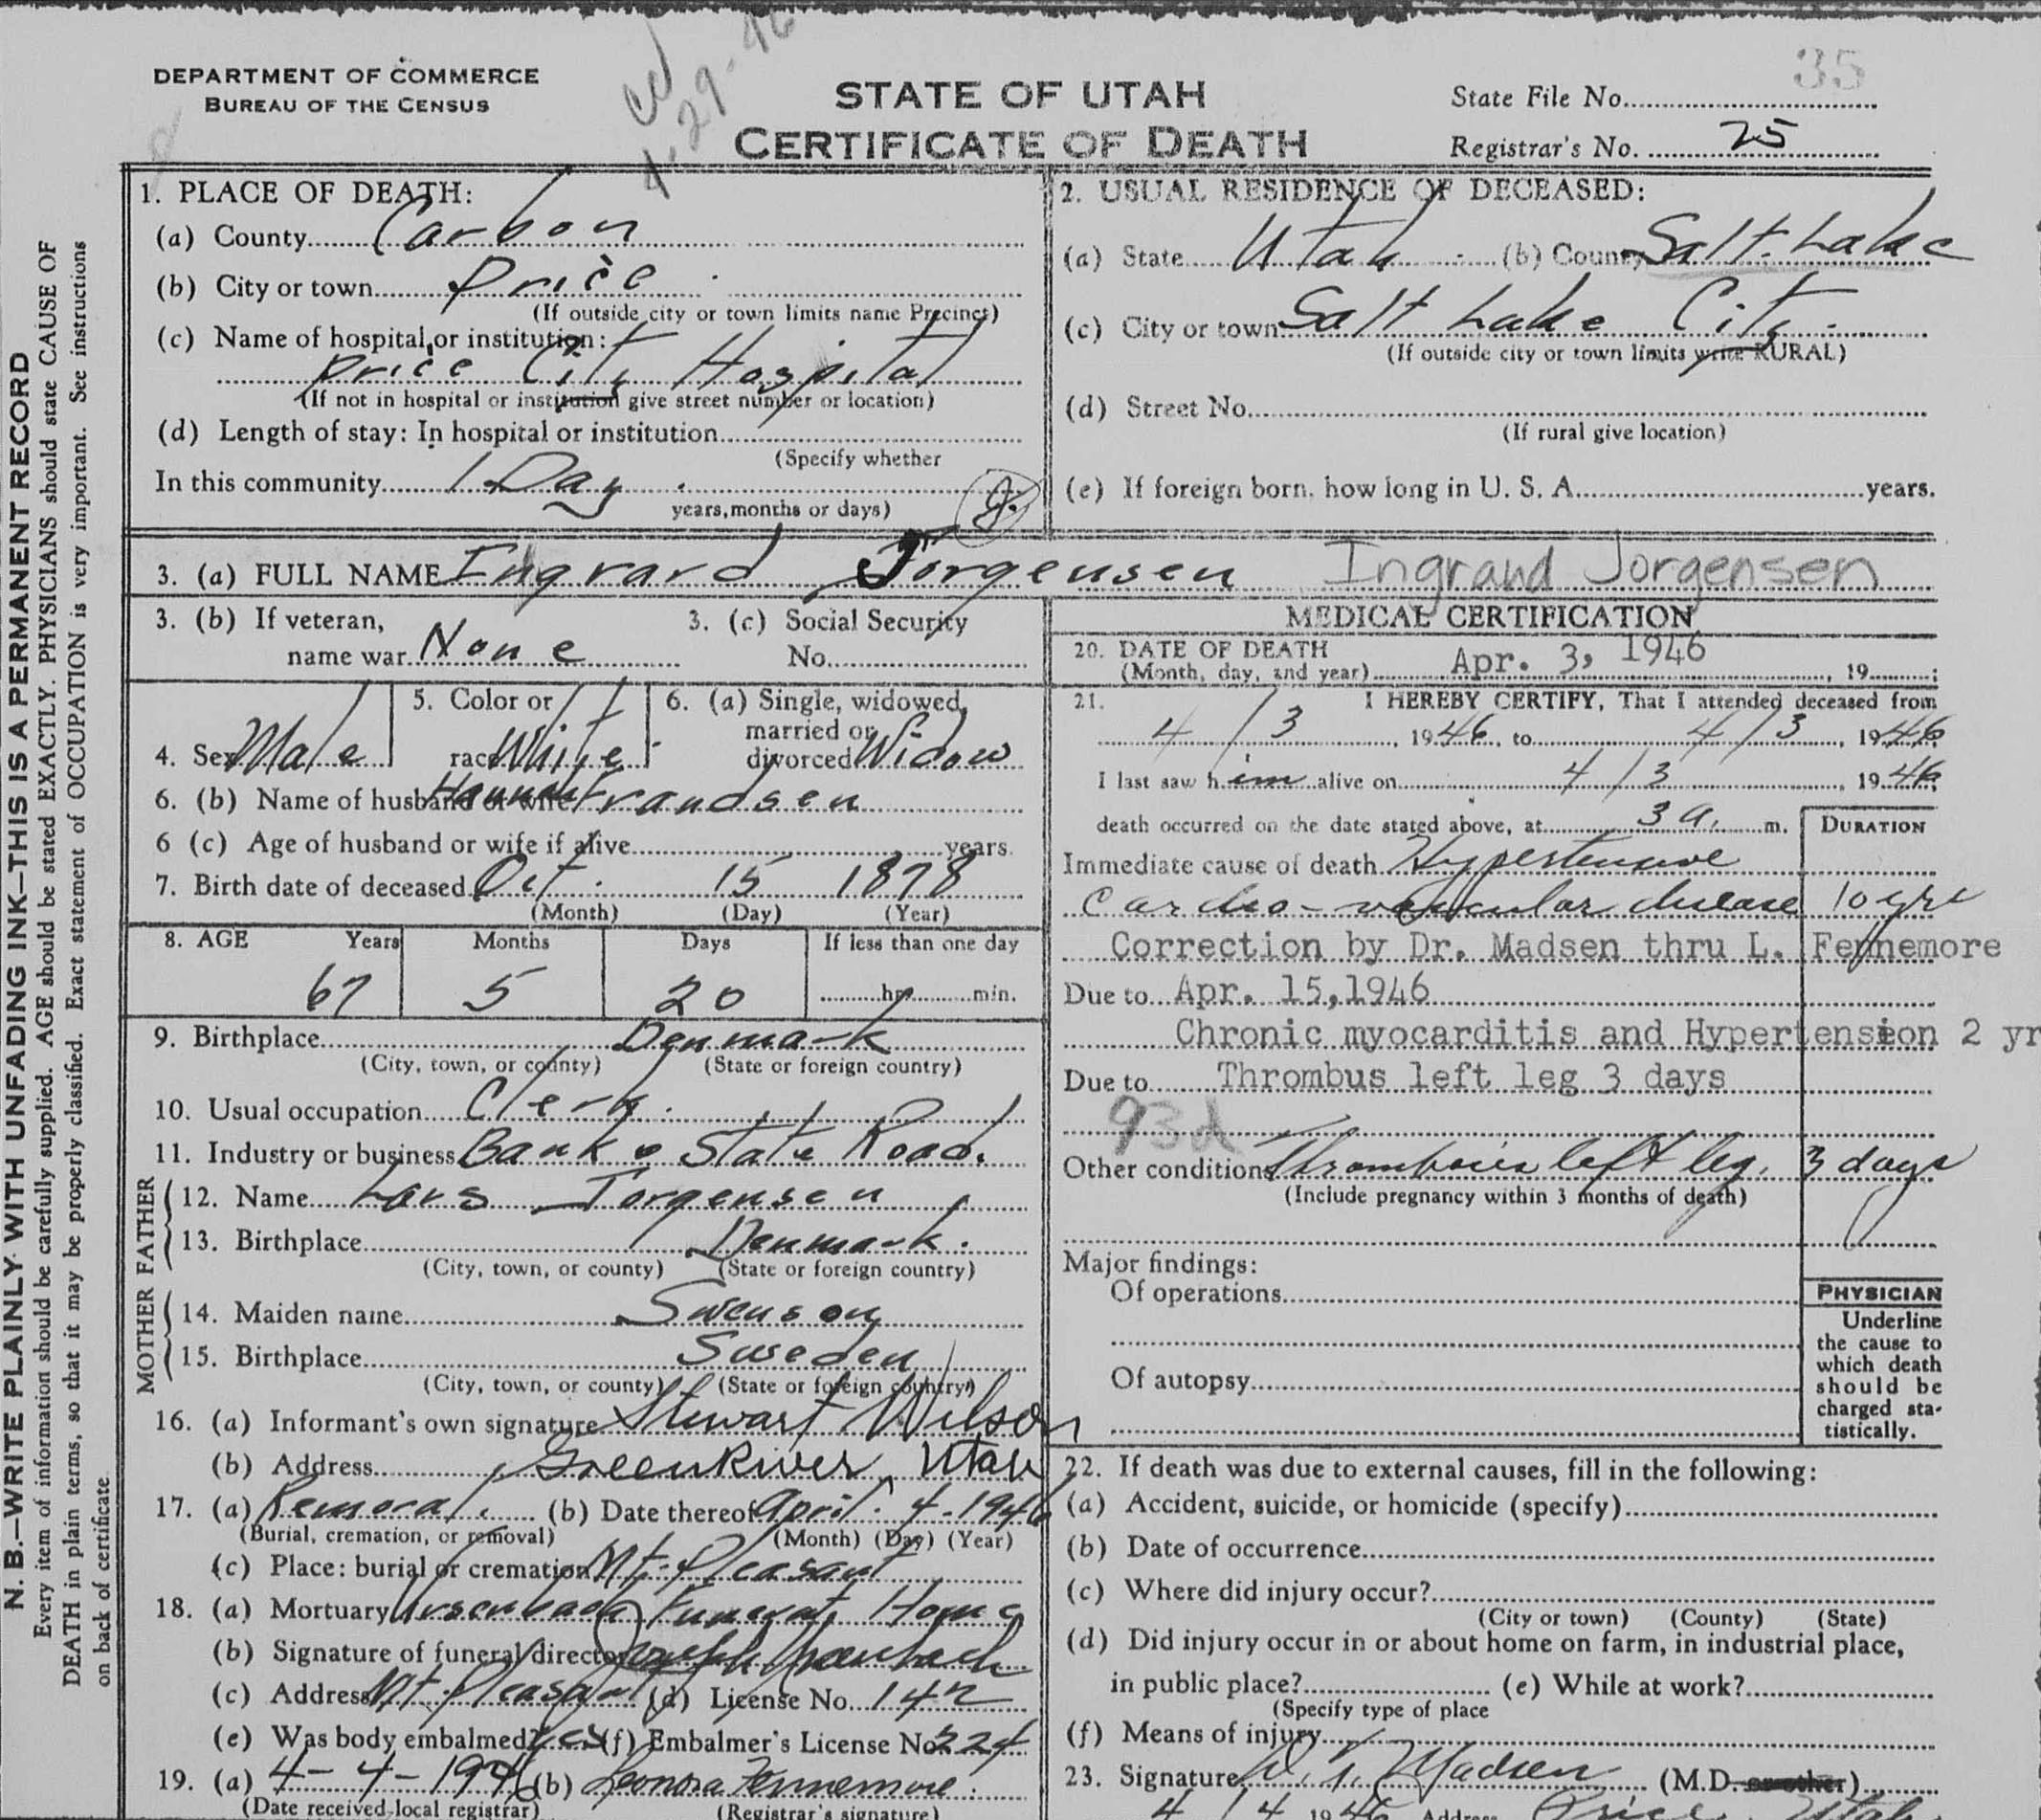 DEPARTMENT OF COMMERCE
BUREAU OF THE CENSUS
4-29-46
STATE OF UTAH
CERTIFICATE OF DEATH
State File No. 35
Registrar's No. 25
N. B.—WRITE PLAINLY WITH UNFADING INK—THIS IS A PERMANENT RECORD
Every item of information should be carefully supplied. AGE should be stated EXACTLY. PHYSICIANS should state CAUSE OF
DEATH in plain terms, so that it may be properly classified. Exact statement of OCCUPATION is very important. See instructions
on back of certificate
1. PLACE OF DEATH:
(a) County Carbon
(b) City or town Price
(If outside city or town limits name Precinct)
(c) Name of hospital or institution:
Price City Hospital
(If not in hospital or institution give street number or location)
(d) Length of stay: In hospital or institution
(Specify whether
In this community 1 Day
years, months or days)
2. USUAL RESIDENCE OF DECEASED:
(a) State Utah (b) County Salt Lake
(c) City or town Salt Lake City
(If outside city or town limits write RURAL)
(d) Street No.
(If rural give location)
(e) If foreign born, how long in U. S. A. years.
3. (a) FULL NAME Ingvard Jorgensen Ingrand Jorgensen
3. (b) If veteran,
name war None
3. (c) Social Security
No.
4. Sex Male
5. Color or
race White
6. (a) Single, widowed,
married or
divorced Widow
6. (b) Name of husband or wife Hannah Frandsen
6 (c) Age of husband or wife if alive years.
7. Birth date of deceased Oct. 15 1878
(Month) (Day) (Year)
8. AGE Years Months Days If less than one day
67 5 20 hr. min.
9. Birthplace Denmark
(City, town, or county) (State or foreign country)
10. Usual occupation Clerk.
11. Industry or business Bank & State Road.
FATHER
12. Name Lars Jorgensen
13. Birthplace Denmark.
(City, town, or county) (State or foreign country)
MOTHER
14. Maiden name Swenson
15. Birthplace Sweden
(City, town, or county) (State or foreign country)
16. (a) Informant's own signature Stewart Wilson
(b) Address GreenRiver, Utah
17. (a) Removal. (b) Date thereof April. 4-1946
(Burial, cremation, or removal) (Month) (Day) (Year)
(c) Place: burial or cremation Mt. Pleasant
18. (a) Mortuary Ursenbach Funeral Home
(b) Signature of funeral director Ursenbach
(c) Address Mt. Pleasant (d) License No. 142
(e) Was body embalmed? Yes (f) Embalmer's License No. 224
19. (a) 4-4-1946 (b) Leonora Fennemore.
(Date received local registrar) (Registrar's signature)
MEDICAL CERTIFICATION
20. DATE OF DEATH
(Month, day, and year) Apr. 3, 1946, 19 ;
21. I HEREBY CERTIFY, That I attended deceased from
4/3, 1946, to 4/3, 1946
I last saw him alive on 4/3, 1946;
death occurred on the date stated above, at 3 a. m. DURATION
Immediate cause of death Hypertensive
Cardio-vascular disease 10 yrs
Correction by Dr. Madsen thru L. Fennemore
Due to Apr. 15,1946
Chronic myocarditis and Hypertension 2 yr
Due to Thrombus left leg 3 days
93d
Other conditions Thrombosis left leg. 3 days
(Include pregnancy within 3 months of death)
Major findings:
Of operations
Of autopsy
PHYSICIAN
Underline
the cause to
which death
should be
charged sta-
tistically.
22. If death was due to external causes, fill in the following:
(a) Accident, suicide, or homicide (specify)
(b) Date of occurrence
(c) Where did injury occur?
(City or town) (County) (State)
(d) Did injury occur in or about home on farm, in industrial place,
in public place? (e) While at work?
(Specify type of place
(f) Means of injury
23. Signature Madsen (M.D. or other)
4/4 1946 Address Price, Utah